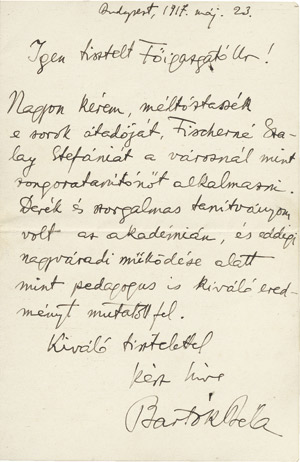 Budapest, 1917. máj. 23.
Igen tisztelt Főigazgató Ur!
Nagyon kérem, méltóztassék
e sorok átadóját, Fischerné Sza-
lay Stefániát a városnál mint
zongoratanítónőt alkalmazni.
Derék és szorgalmas tanítványom
volt az akadémián, és eddigi
nagyváradi működése alatt
mint pedagogus is kiváló ered-
ményt mutatott fel.
Kiváló tisztelettel
kész híve
Bartók Béla